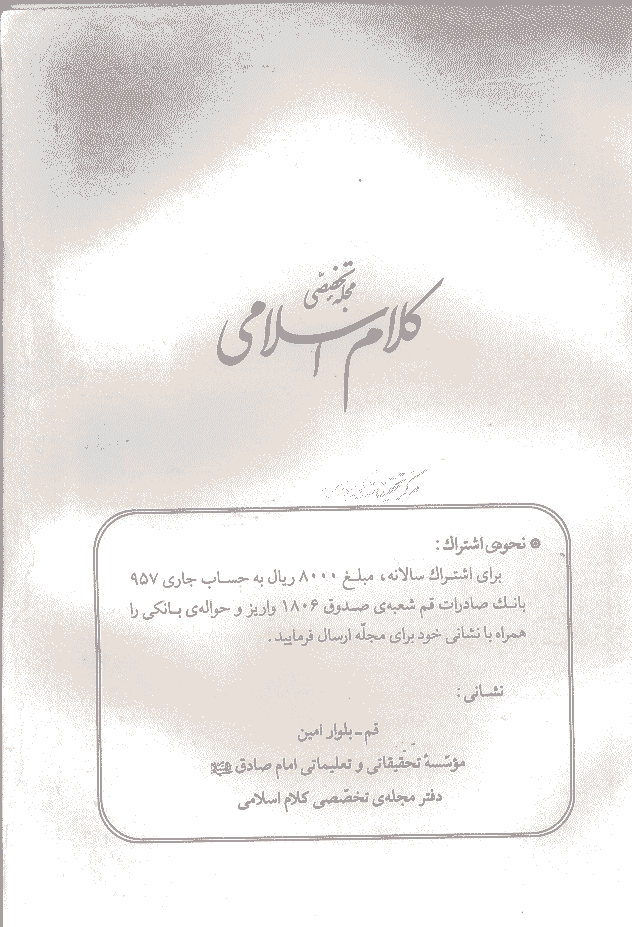 مجله تخصصی
کلام اسلامی
مرکز تحقیقات
نحوه‌ی اشتراک :
برای اشتراک سالانه، مبلغ ۸۰۰۰ ریال به حساب جاری ۹۵۷
بانک صادرات قم شعبه‌ی صدوق ۱۸۰۶ واریز و حواله‌ی بانکی را
همراه با نشانی خود برای مجلّه ارسال فرمایید.
نشانی :
قم ـ بلوار امین
مؤسّسهٔ تحقیقاتی و تعلیماتی امام صادق
دفتر مجله‌ی تخصّصی کلام اسلامی